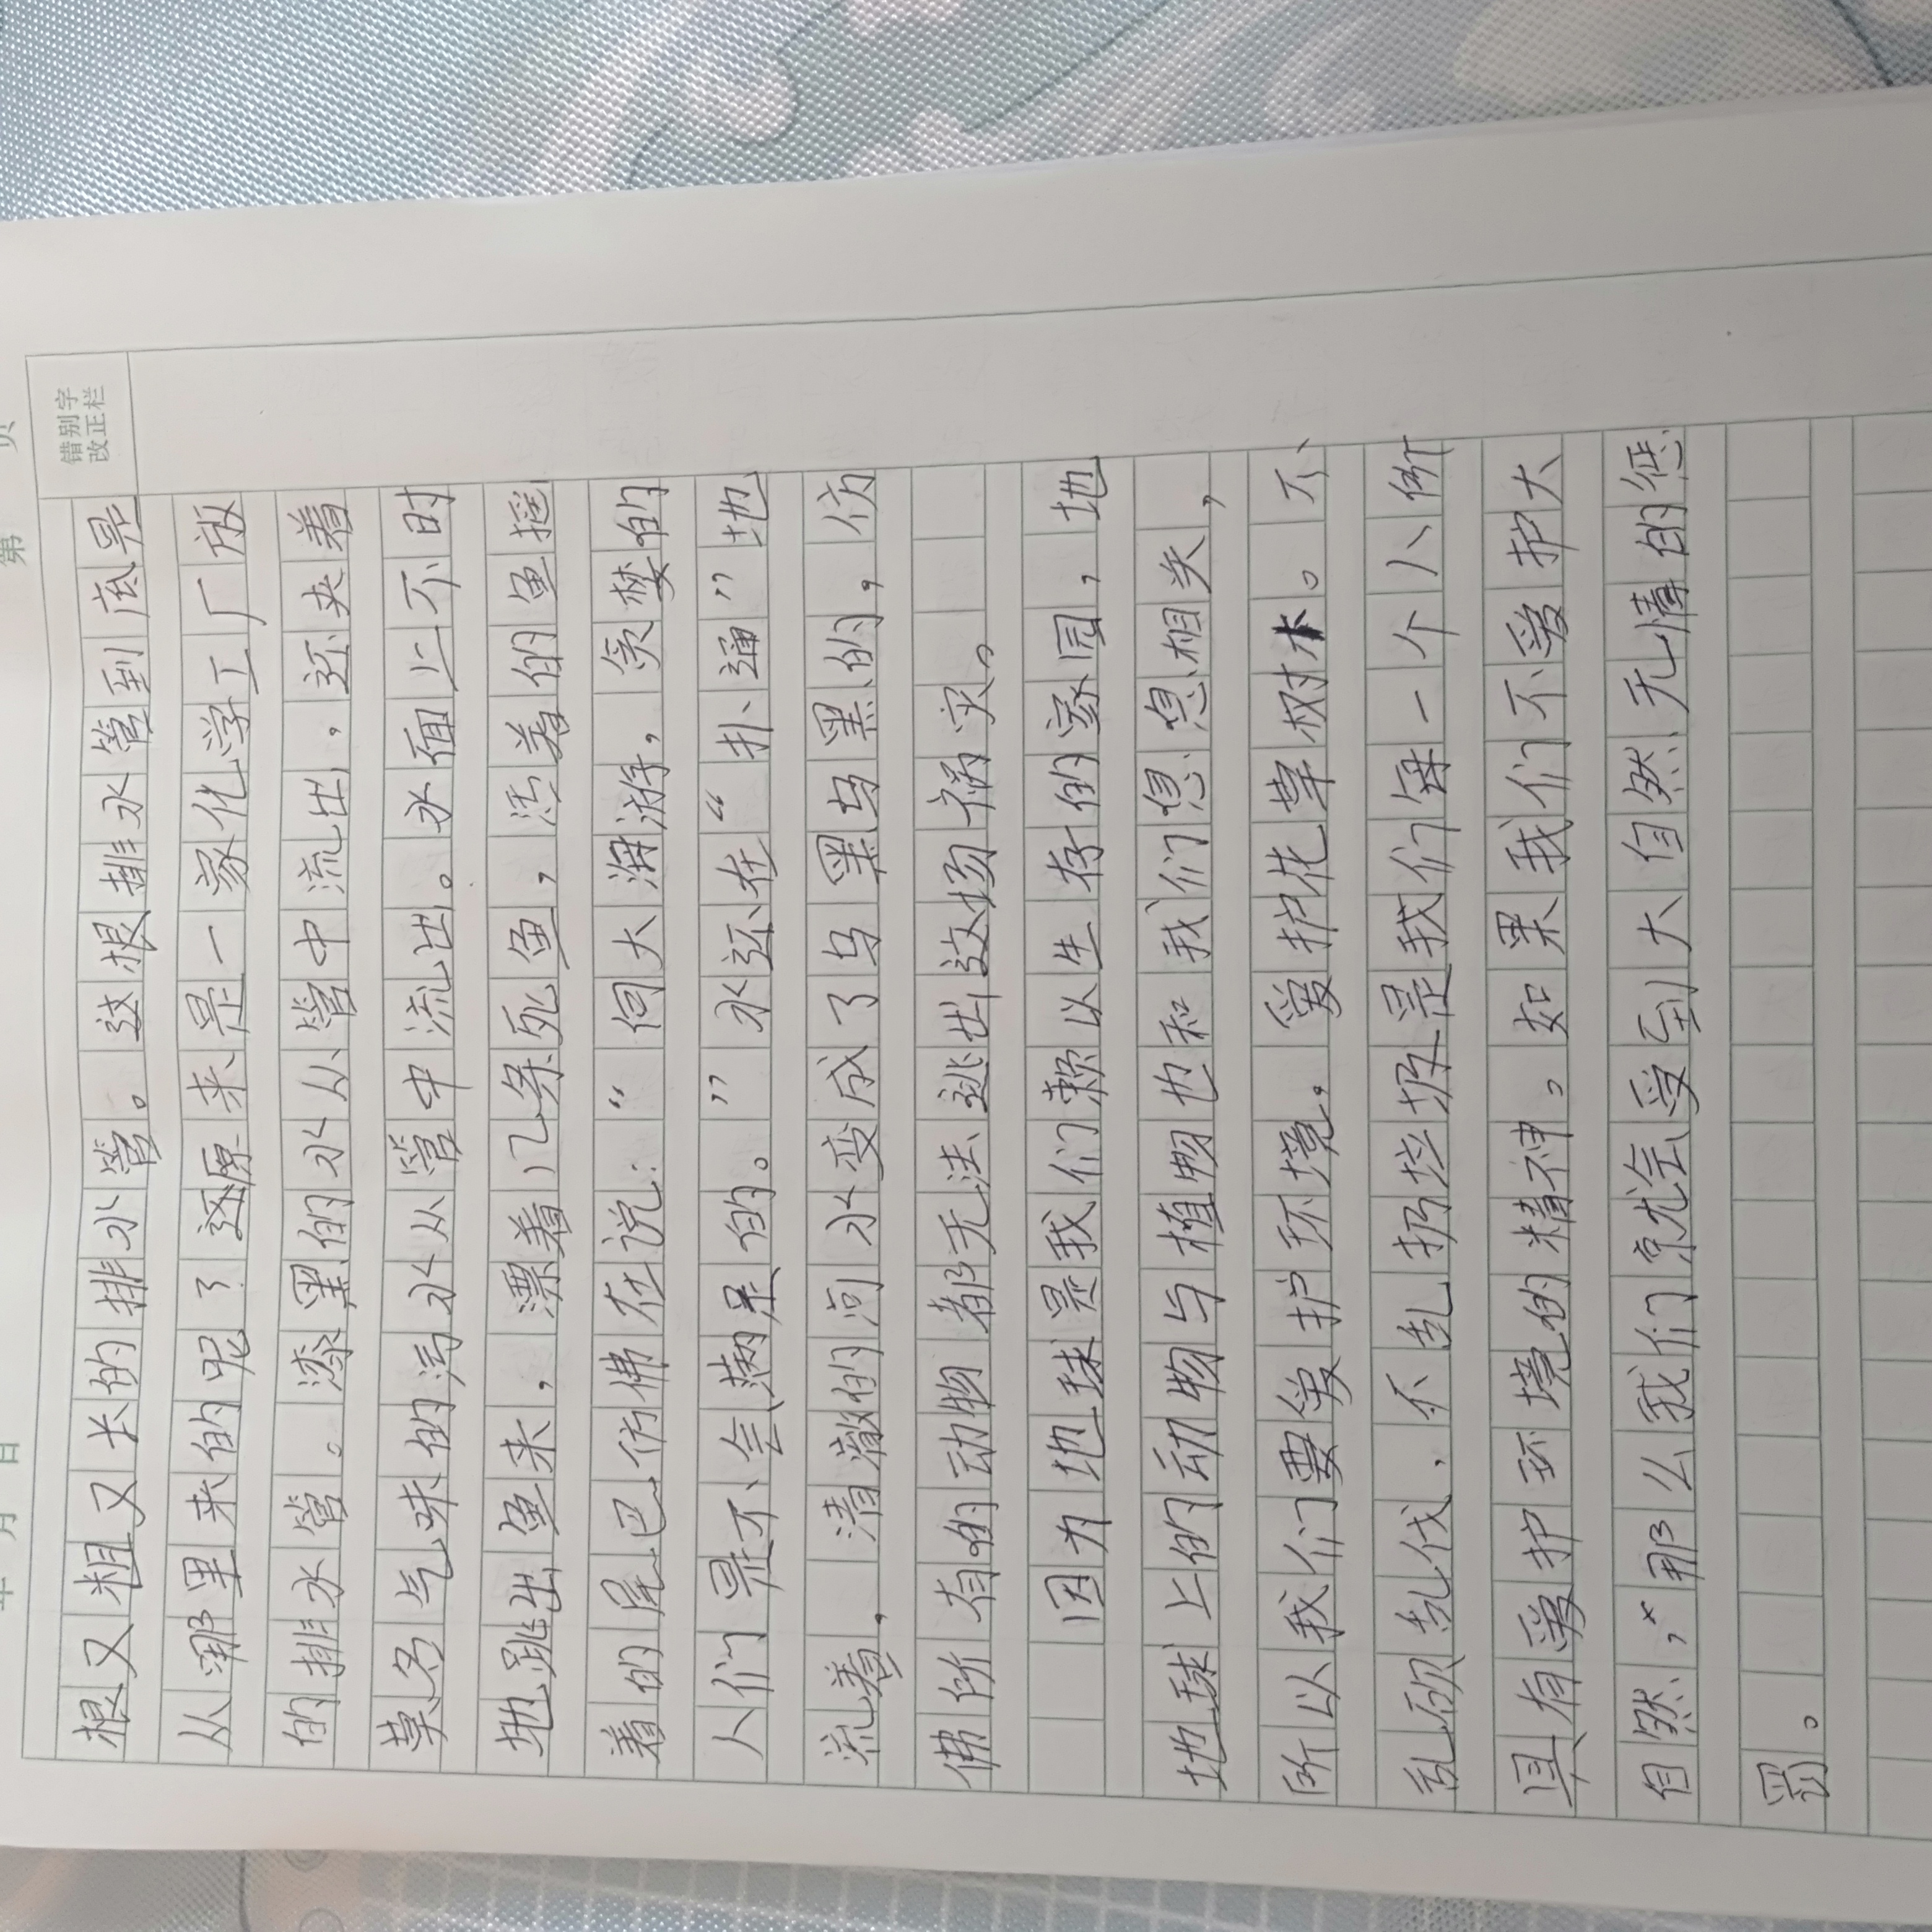 年 月 日 第 页
错别字
改正栏
根又粗又长的排水管。这根排水管到底是
从哪里来的呢？这原来是一家化学工厂放
的排水管。漆黑的水从管中流出，还夹着
莫名气味的污水从管中流出。水面上不时
地跳出鱼来，漂着几条死鱼，活着的鱼摇
着的尾巴仿佛在说：“何大海游，贪婪的
人们是不会满足的。”水还在“扑通”地
流着，清澈的河水变成了乌黑乌黑的，仿
佛所有的动物都无法逃出这场祸灾。
因为地球是我们赖以生存的家园，地
地球上的动物与植物也和我们息息相关，
所以我们要爱护环境。爱护花草树木。不、
乱砍乱伐，不乱扔垃圾是我们每一个人所
具有爱护环境的精神。如果我们不爱护大
自然，那么我们就会受到大自然无情的惩
罚。